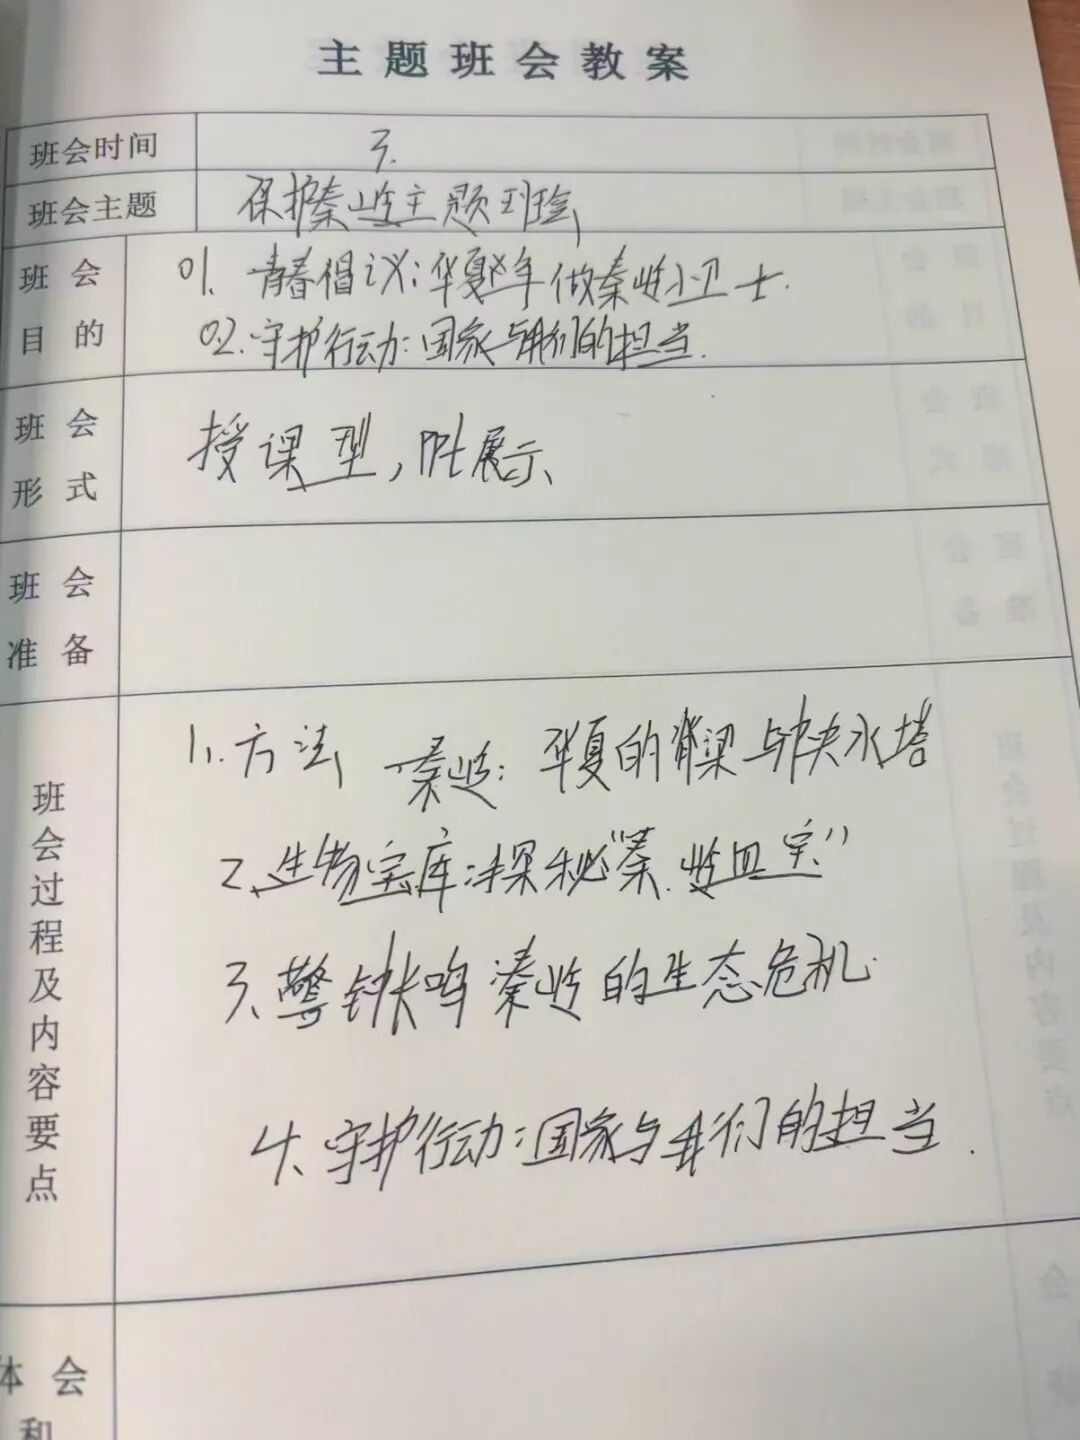 主题班会教案
班会时间 3.
班会主题 保护秦岭主题班会
班会目的 01. 青春倡议:华夏少年 做秦岭小卫士.
02.守护行动:国家与我们的担当.
班会形式 授课型,PPt展示
班会准备
班会过程及内容要点 1.方法 秦岭:华夏的脊梁与中央水塔
2.生物宝库:探秘"秦岭四宝"
3.警钟长鸣 秦岭的生态危机.
4.守护行动:国家与我们的担当.
体会
和